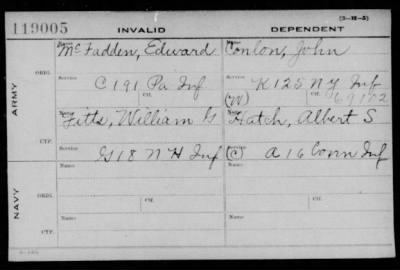 (3-18-5)
119005 INVALID DEPENDENT
Name: McFadden, Edward Name: Conlon, John
ORIG. Service: C 191 Pa Inf Service: K 125 N Y Inf
Ctf. (W) Ctf. 69102
ARMY
Name: Fitts, William G Name: Hatch, Albert S
CTF. Service: G 18 N H Inf Service: (C) A 16 Conn Inf
Name: Name:
ORIG. Service: Ctf. Service: Ctf.
NAVY
Name: Name:
CTF. Service: Service: